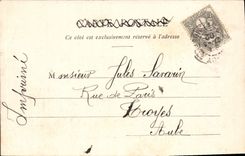 Ce côté est exclusivement réservé à l'adresse
Imprimé
Monsieur Jules Savarin
Rue de Paris
Troyes
Aube